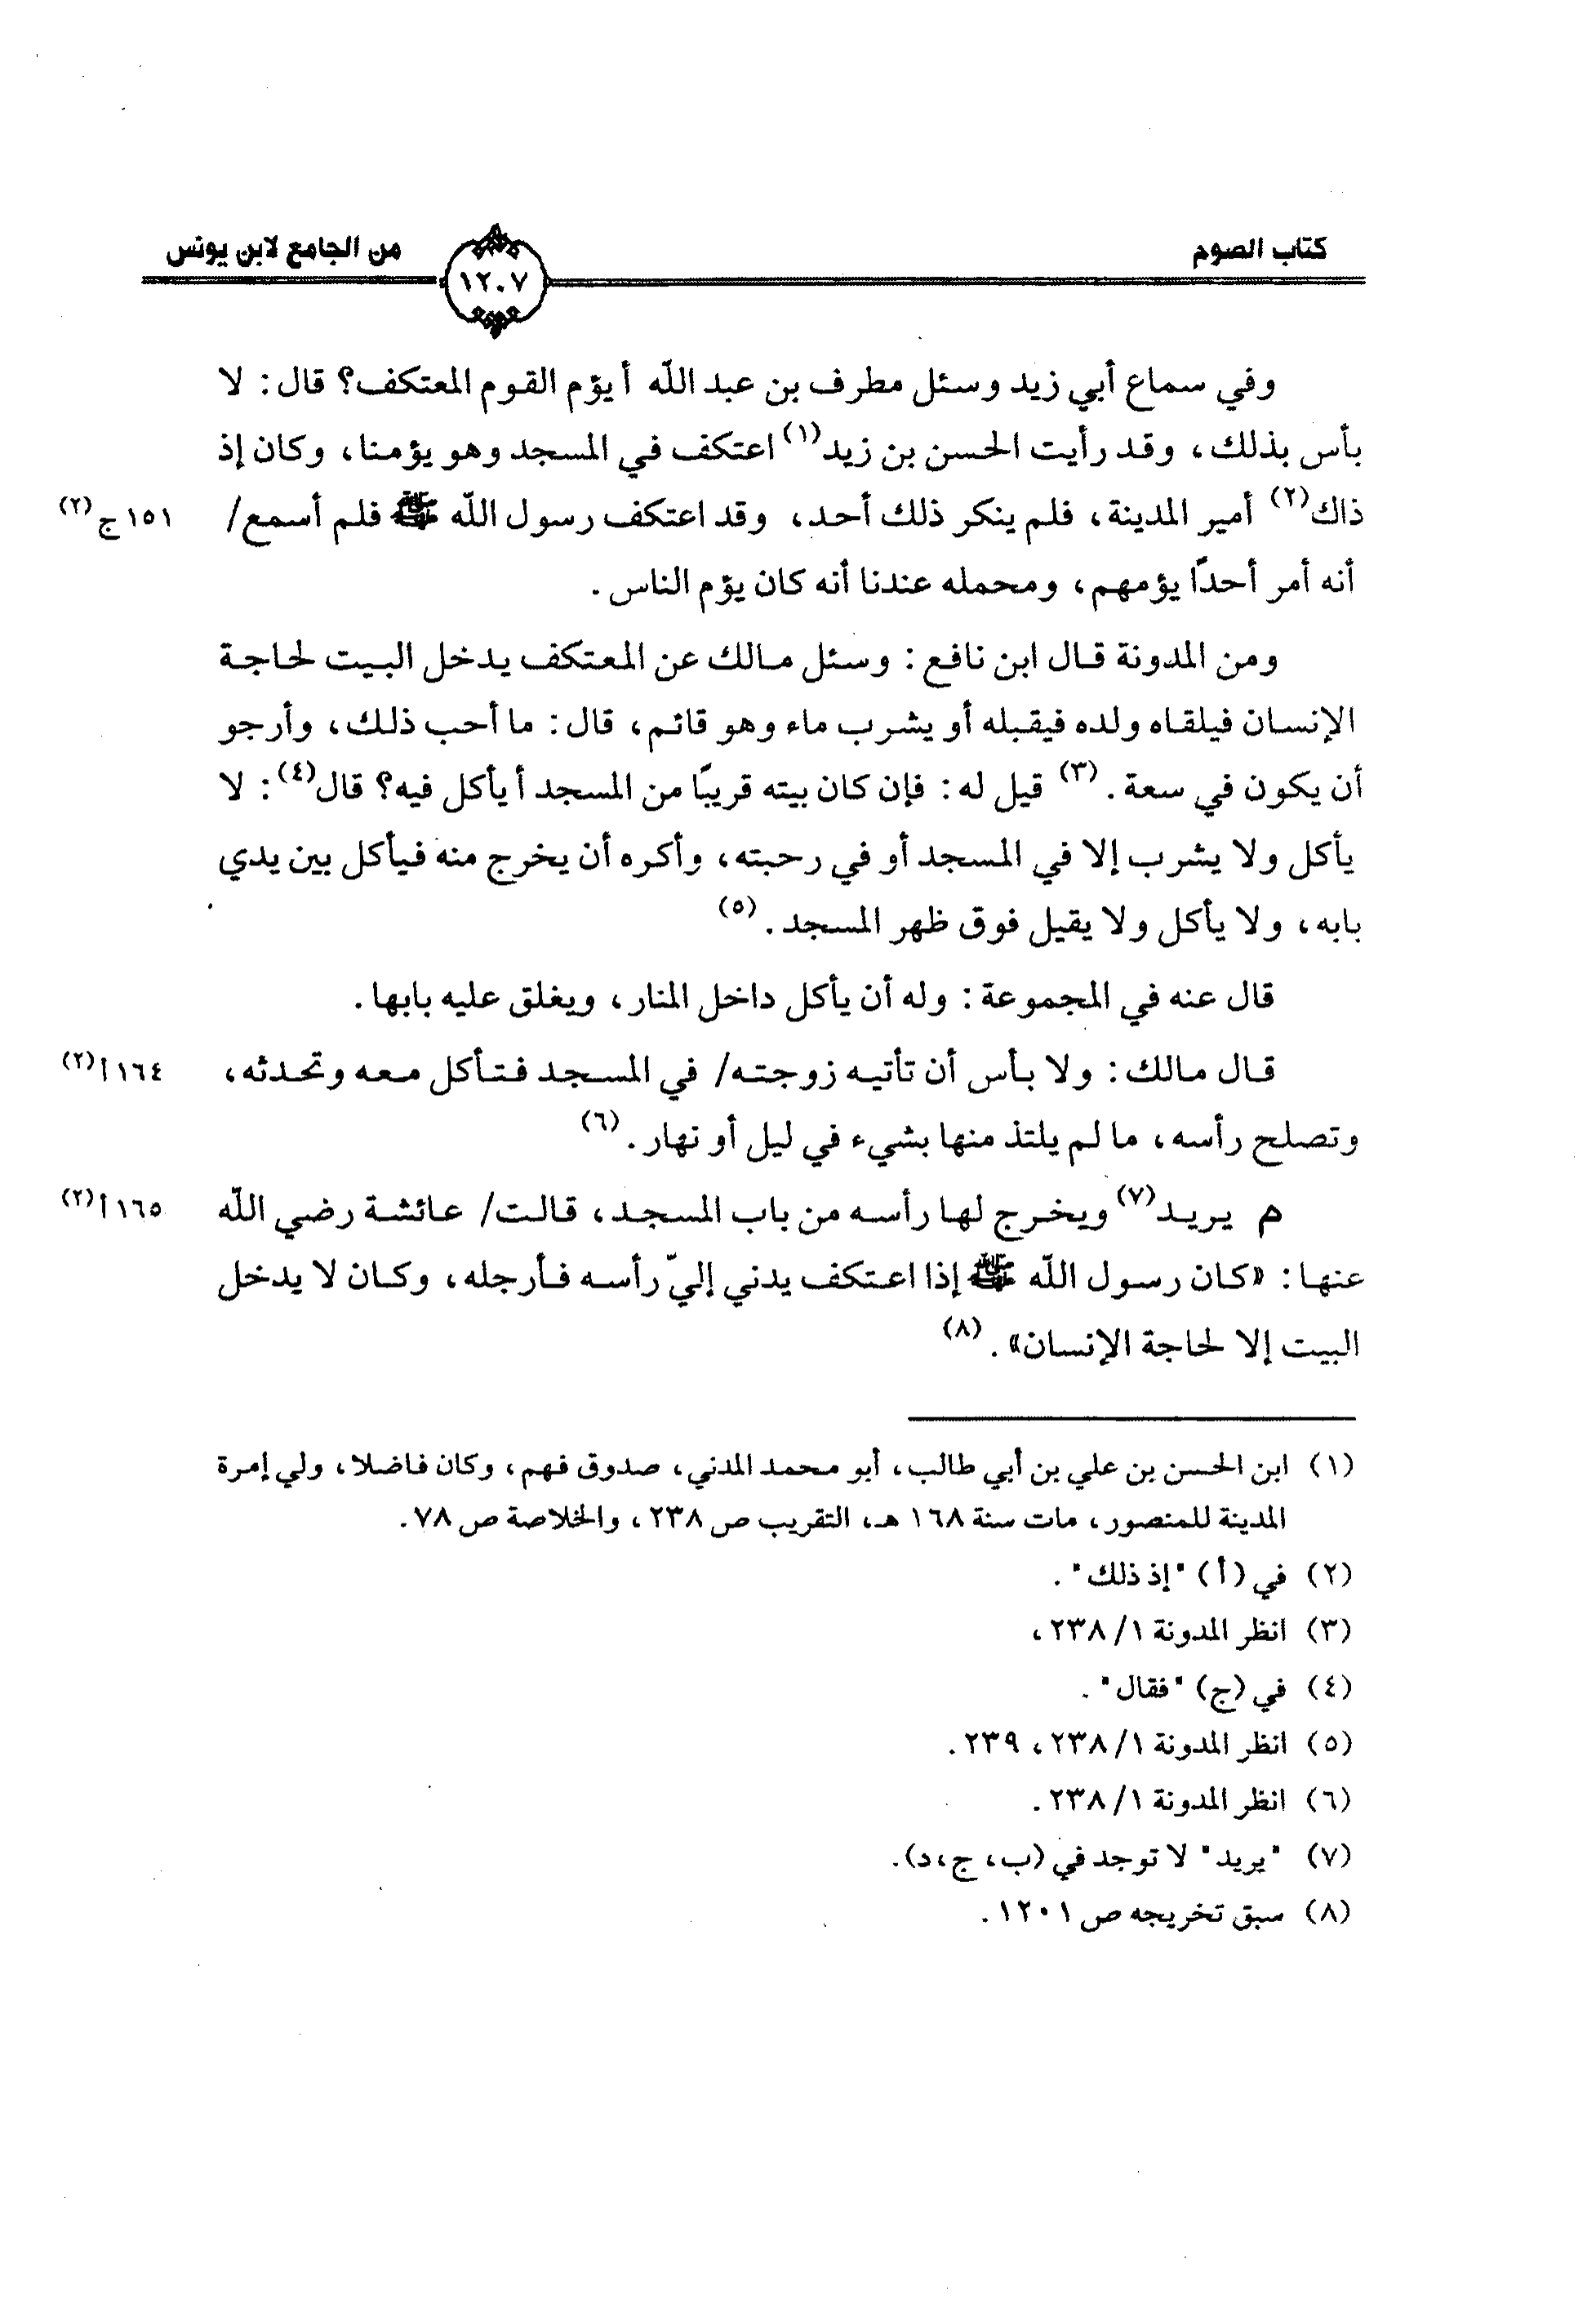 كتاب الصوم
١٢٠٧
من الجامع لابن يونس
وفي سماع أبي زيد وسئل مطرف بن عبد الله أيؤم القوم المعتكف؟ قال: لا
بأس بذلك، وقد رأيت الحسن بن زيد(١) اعتكف في المسجد وهو يؤمنا، وكان إذ
ذاك(٢) أمير المدينة، فلم ينكر ذلك أحد، وقد اعتكف رسول الله ﷺ فلم أسمع/ ١٥١ج(٢)
أنه أمر أحدًا يؤمهم، ومحمله عندنا أنه كان يؤم الناس.
ومن المدونة قال ابن نافع: وسئل مالك عن المعتكف يدخل البيت لحاجة
الإنسان فيلقاه ولده فيقبله أو يشرب ماء وهو قائم، قال: ما أحب ذلك، وأرجو
أن يكون في سعة.(٣) قيل له: فإن كان بيته قريبًا من المسجد أيأكل فيه؟ قال(٤): لا
يأكل ولا يشرب إلا في المسجد أو في رحبته، وأكره أن يخرج منه فيأكل بين يدي
بابه، ولا يأكل ولا يقيل فوق ظهر المسجد.(٥)
قال عنه في المجموعة: وله أن يأكل داخل المنار، ويغلق عليه بابها.
قال مالك: ولا بأس أن تأتيه زوجته/ في المسجد فتأكل معه وتحدثه، ١٦٤أ(٢)
وتصلح رأسه، ما لم يلتذ منها بشيء في ليل أو نهار.(٦)
م يريد(٧) ويخرج لها رأسه من باب المسجد، قالت/ عائشة رضي الله ١٦٥أ(٢)
عنها: «كان رسول الله ﷺ إذا اعتكف يدني إليّ رأسه فأرجله، وكان لا يدخل
البيت إلا لحاجة الإنسان».(٨)
(١) ابن الحسن بن علي بن أبي طالب، أبو محمد المدني، صدوق فهم، وكان فاضلا، ولي إمرة
المدينة للمنصور، مات سنة ١٦٨ هـ، التقريب ص ٢٣٨، والخلاصة ص ٧٨.
(٢) في (أ) "إذ ذلك".
(٣) انظر المدونة ١/ ٢٣٨،
(٤) في (ج) "فقال".
(٥) انظر المدونة ١/ ٢٣٨، ٢٣٩.
(٦) انظر المدونة ١/ ٢٣٨.
(٧) "يريد" لا توجد في (ب، ج،د).
(٨) سبق تخريجه ص ١٢٠١.